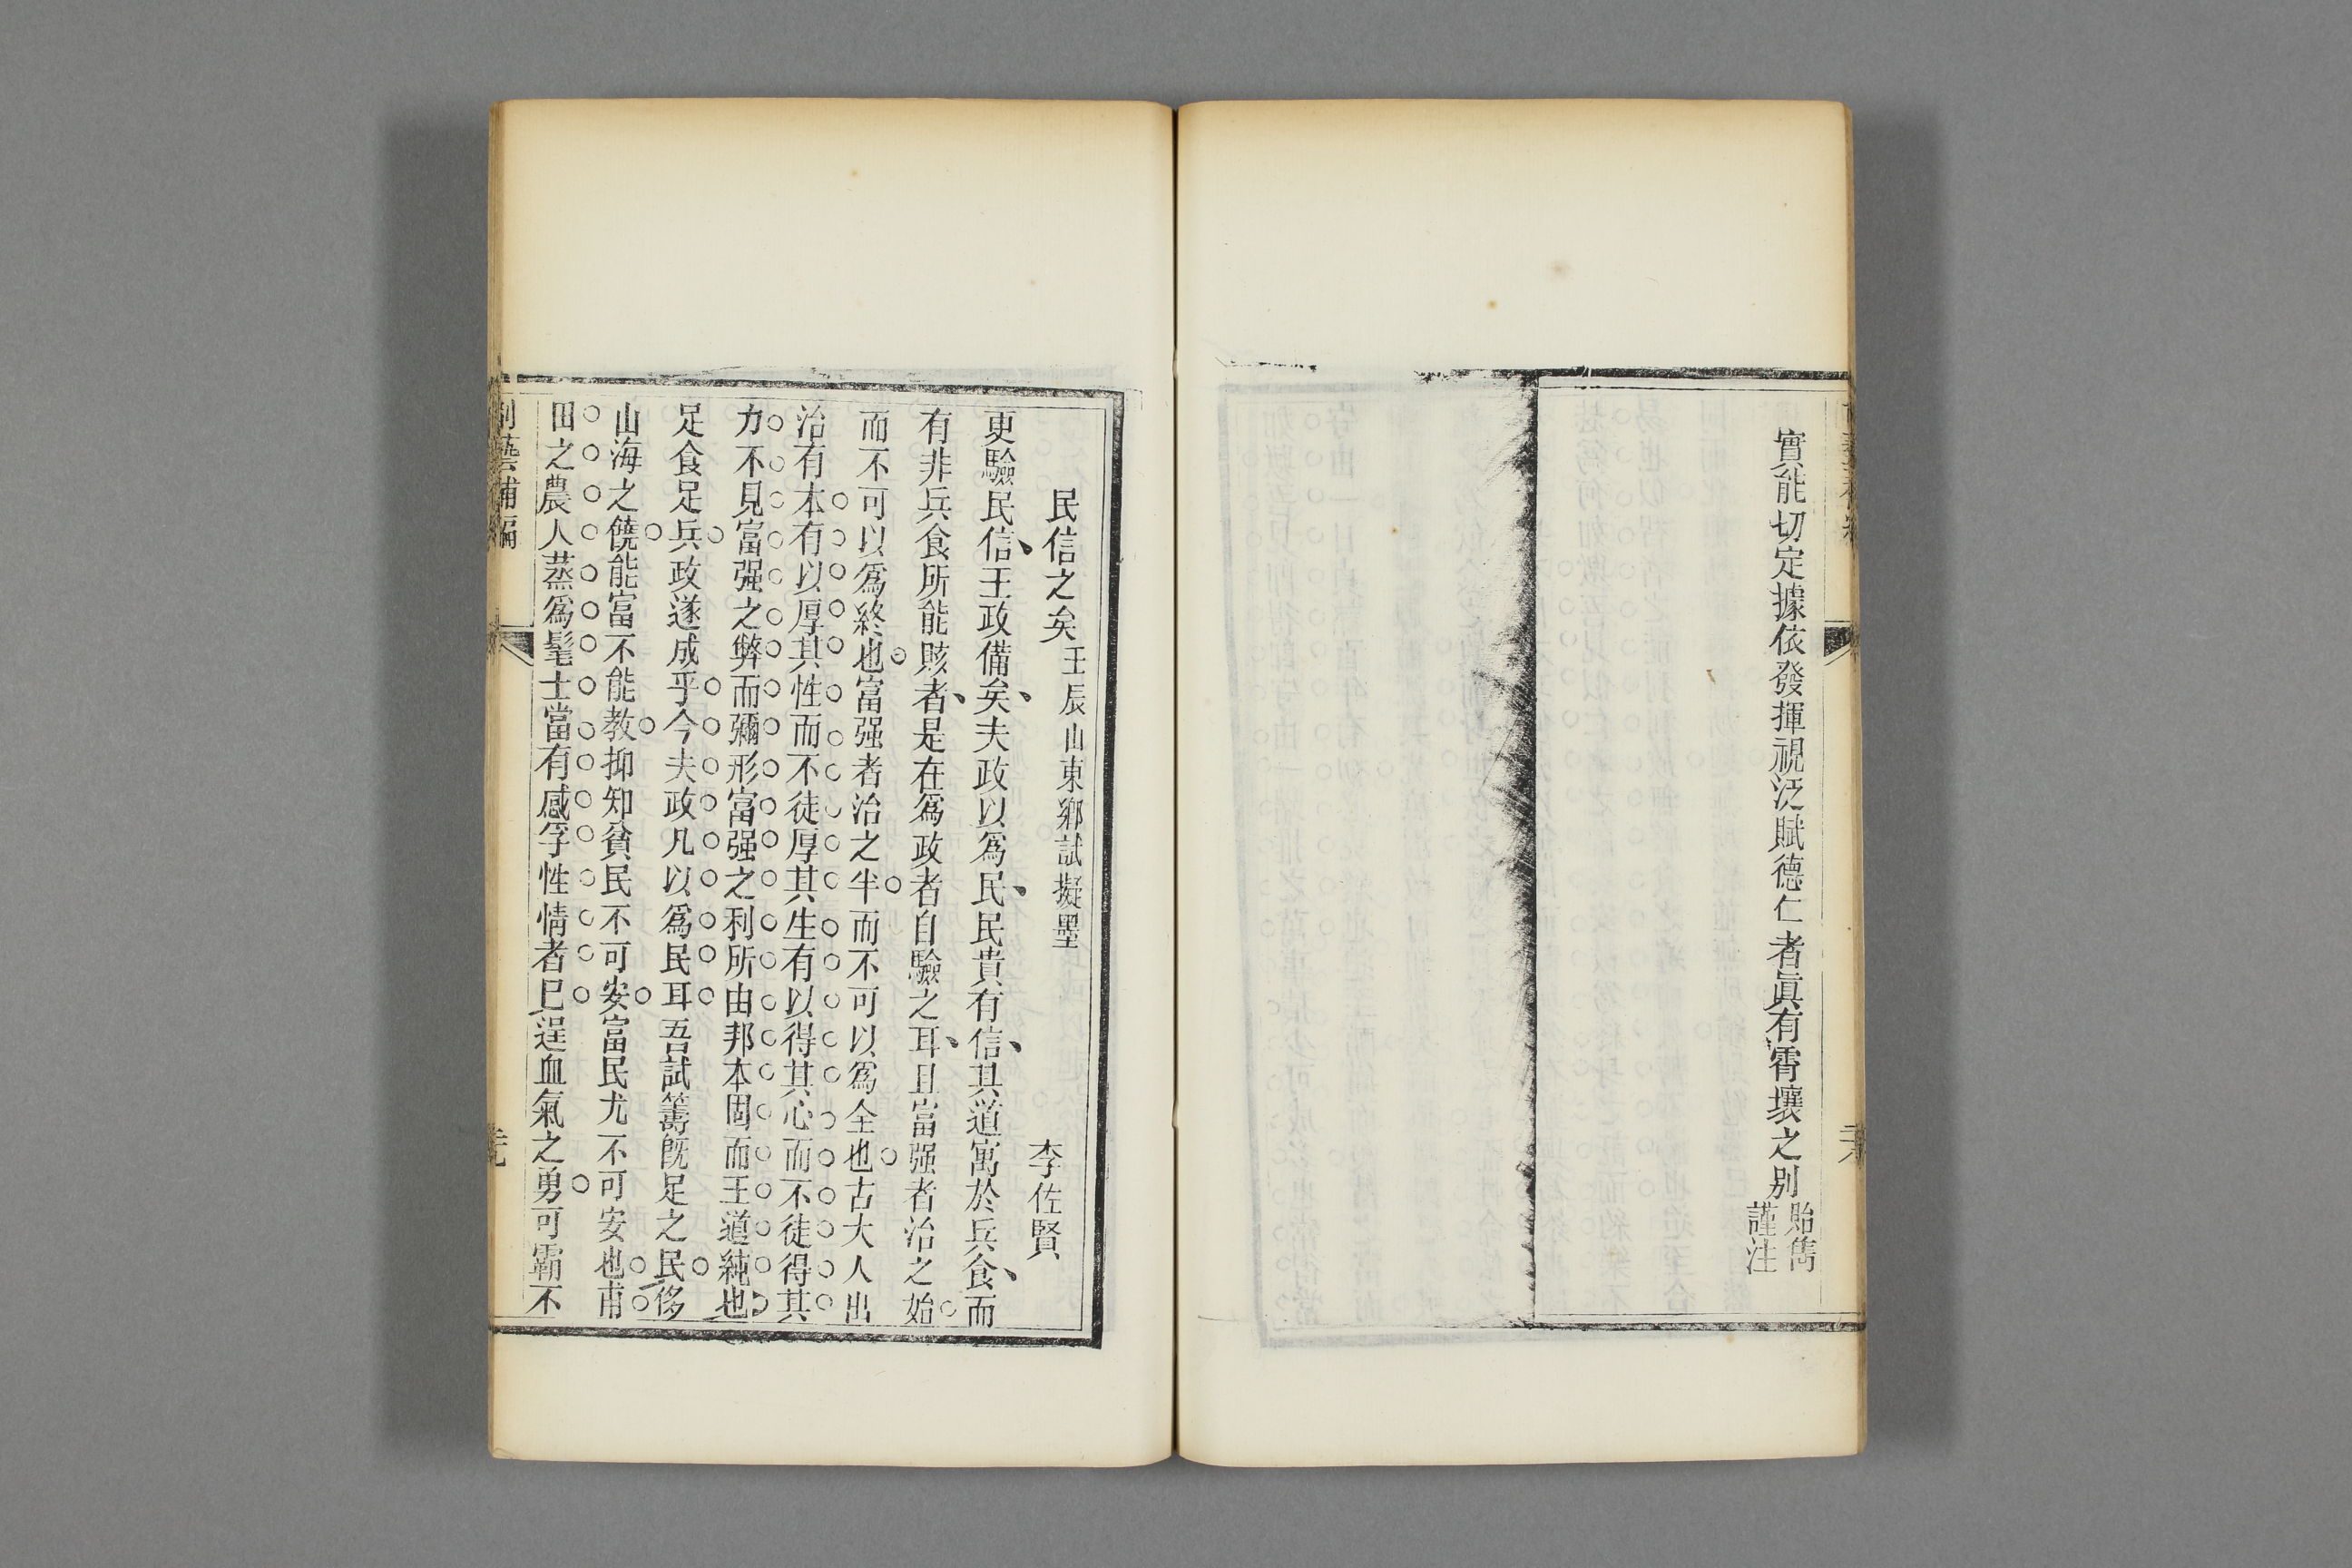 實能切定據依發揮視泛賦德仁者眞有霄壤之别貽雋
謹注
民信之矣壬辰山東鄉試擬墨
李佐賢
更驗民信王政備矣夫政以爲民民貴有信其道寓於兵食而
有非兵食所能賅者是在爲政者自驗之耳且富强者治之始
而不可以爲終也富强者治之半而不可以爲全也古大人出
治有本有以厚其性而不徒厚其生有以得其心而不徒得其
力不見富强之弊而彌形富强之利所由邦本固而王道純也
足食足兵政遂成乎今夫政凡以爲民耳吾試籌旣足之民侈
山海之饒能富不能教抑知貧民不可安富民尤不可安也甫
田之農人蒸爲髦士當有感孚性情者已逞血氣之勇可霸不